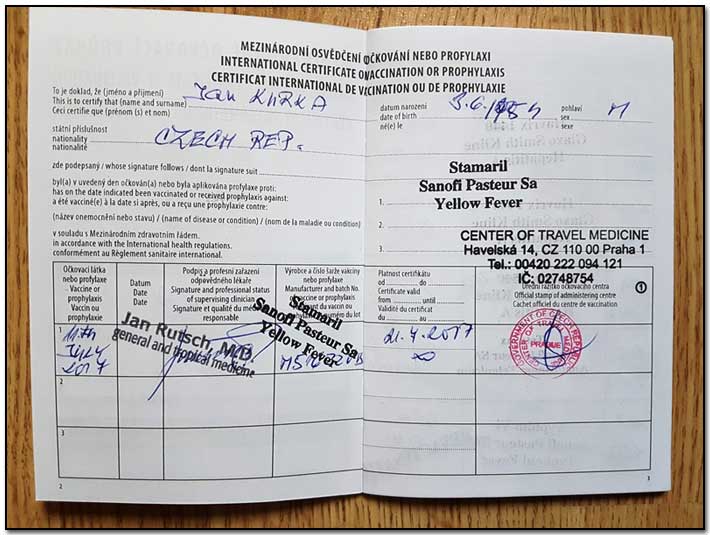 MEZINÁRODNÍ OSVĚDČENÍ OČKOVÁNÍ NEBO PROFYLAXI
INTERNATIONAL CERTIFICATE O VACCINATION OR PROPHYLAXIS
CERTIFICAT INTERNATIONAL DE V CCINATION OU DE PROPHYLAXIE
To je doklad, že (jméno a příjmení)
This is to certify that (name and surname)
Ceci certifie que (prénom (s) et nom)
Jan KURKA
datum narození
date of birth
né(e) le
pohlaví
sex
sexe
M
státní příslušnost
nationality
nationalité
CZECH REP.
zde podepsaný / whose signature follows / dont la signature suit
byl(a) v uvedený den očkován(a) nebo byla aplikována profylaxe proti:
has on the date indicated been vaccinated or received prophylaxis against:
a été vacciné(e) à la date si après, ou a reçu une prophylaxie contre:
(název onemocnění nebo stavu) / (name of disease or condition) / (nom de la maladie ou condition)
v souladu s Mezinárodním zdravotním řádem.
in accordance with the International health regulations.
conformément au Règlement sanitaire international.
Stamaril
Sanofi Pasteur Sa
Yellow Fever
1.
2.
3.
CENTER OF TRAVEL MEDICINE
Havelská 14, CZ 110 00 Praha 1
Tel.: 00420 222 094 121
IČ: 02748754
Očkovací látka
nebo profylaxe
Vaccine or
prophylaxis
Vaccin ou
prophylaxie
Datum
Date
Date
Podpis a profesní zařazení
odpovědného lékaře
Signature and professional status
of supervising clinician
Signature et qualité du
responsable
Výrobce a číslo šarže vakcíny
nebo profylaxe
Manufacturer and batch No.
of vaccine or prophylaxis
du vaccin ou
numéro du lot
Platnost certifikátu
od do
Certificate valid
from until
Validité du certificat
du au
Úřední razítko očkovacího centra
Official stamp of administering centre
Cachet officiel du centre de vaccination
1
1
11th
July
2017
Jan Rutsch, M.D.
general and tropical medicine
Stamaril
Sanofi Pasteur Sa
Yellow Fever
21.7.2017
∞
GOVERNMENT OF CZECH REPUBLIC
CENTER OF TRAVEL MEDICINE
PRAGUE
2
3
2
3